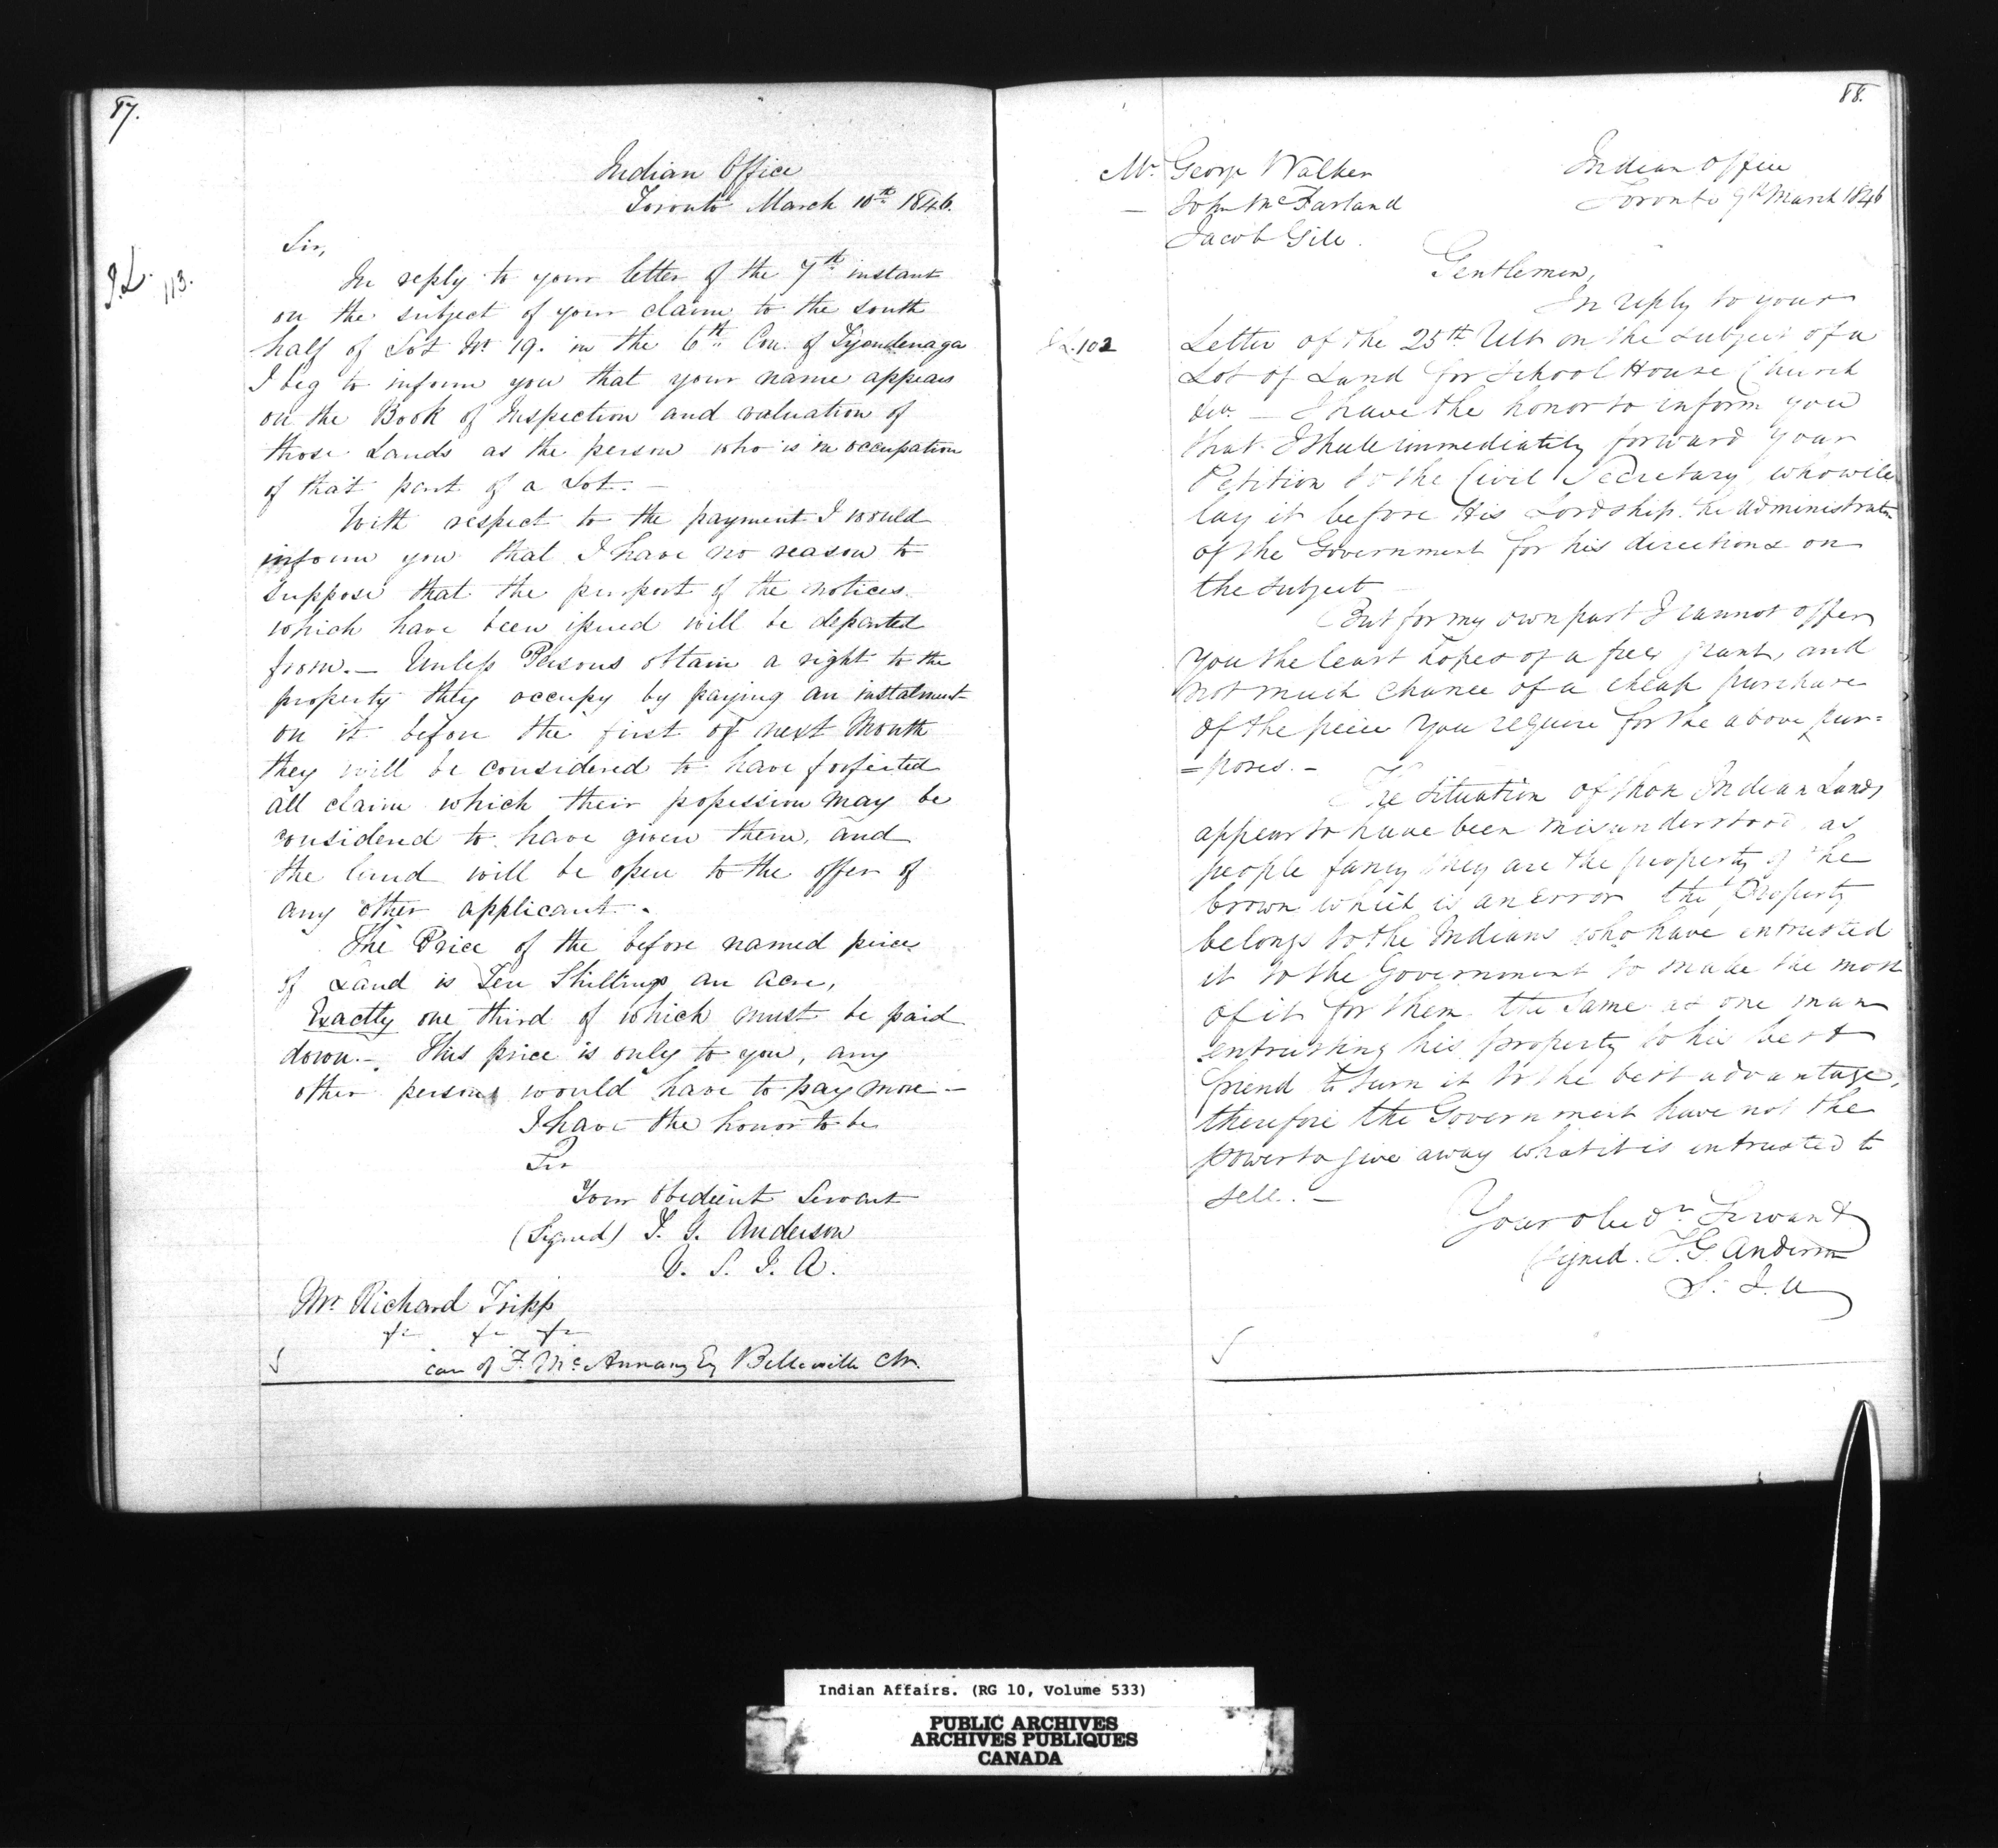 87.
Indian Office
Toronto March 10th 1846.
Sir,
I.L. 113.
In reply to your letter of the 7th instant
on the subject of your claim to the south
half of Lot No 19. in the 6th Con. of Tyendenaga
I beg to inform you that your name appears
on the Book of Inspection and valuation of
those Lands as the person who is in occupation
of that part of a Lot. —
With respect to the payment I would
inform you that I have no reason to
suppose that the purport of the notices
which have been issued will be departed
from. — Unless Persons obtain a right to the
property they occupy by paying an instalment
on it before the first of next Month
they will be considered to have forfeited
all claim which their possession may be
considered to have given them, and
the land will be open to the offer of
any other applicant.
The Price of the before named piece
of Land is Ten Shillings an acre,
Exactly one third of which must be paid
down. — This price is only to you, any
other person would have to pay more —
I have the honor to be
Sir
Your obedient Servant
(Signed) T. G. Anderson
V. S. I. A.
Mr Richard Tripp
&c &c &c
care of F. McAnnany Eq Belleville CW.
88.
Mr George Walker
— John McFarland
Jacob Gill.
Indian Office
Toronto 9th March 1846
Gentlemen,
In reply to your
I.L. 102
Letter of the 25th Ult on the subject of a
Lot of Land for School House Church
&c. — I have the honor to inform you
that I shall immediately forward your
Petition to the Civil Secretary who will
lay it before His Lordship the Administrator
of the Government for his directions on
the subject
But for my own part I cannot offer
you the least hopes of a free grant, and
not much chance of a cheap purchase
of the piece you require for the above pur=
=poses. —
The situation of those Indian Lands
appears to have been misunderstood as
people fancy they are the property of the
Crown which is an error the Property
belongs to the Indians who have entrusted
it to the Government to make the most
of it for them the same as one man
entrusting his property to his best
friend to turn it to the best advantage,
therefore the Government have not the
power to give away what it is entrusted to
sell. —
Your obedt Servant
(signed. T G Anderson
S. I. A
Indian Affairs. (RG 10, Volume 533)
PUBLIC ARCHIVES
ARCHIVES PUBLIQUES
CANADA